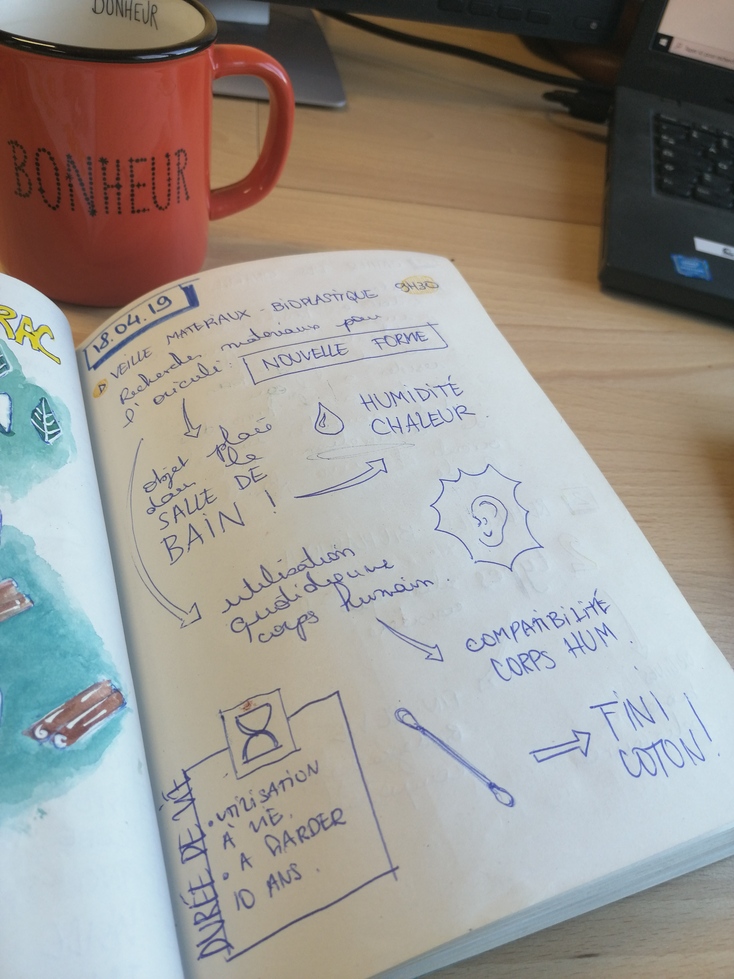 BONHEUR
BONHEUR
RAC
18.04.19
VEILLE MATERIAUX BIOPLASTIQUE 9H30
Recherches materiaux pour
l'oriculi : NOUVELLE FORME
objet placé
dans la
SALLE DE
BAIN !
HUMIDITÉ
CHALEUR.
utilisation
quotidienne
corps humain.
COMPATIBILITÉ
CORPS HUM.
FINI
COTON!
DURÉE DE VIE
• UTILISATION
À VIE.
• A GARDER
10 ANS.